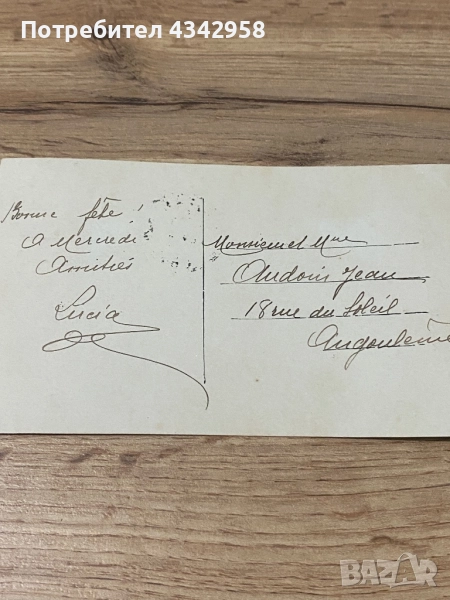 Потребител 4342958
Bonne fête !
A Mercredi
Amitiés
Lucia
Monsieur et Mme
Audoin Jean
18 rue du Soleil
Angoulême
BAZAR